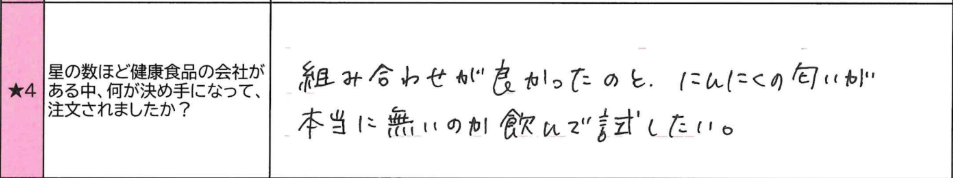 ★4
星の数ほど健康食品の会社が
ある中、何が決め手になって、
注文されましたか？
組み合わせが良かったのと、にんにくの匂いが
本当に無いのか飲んで試したい。